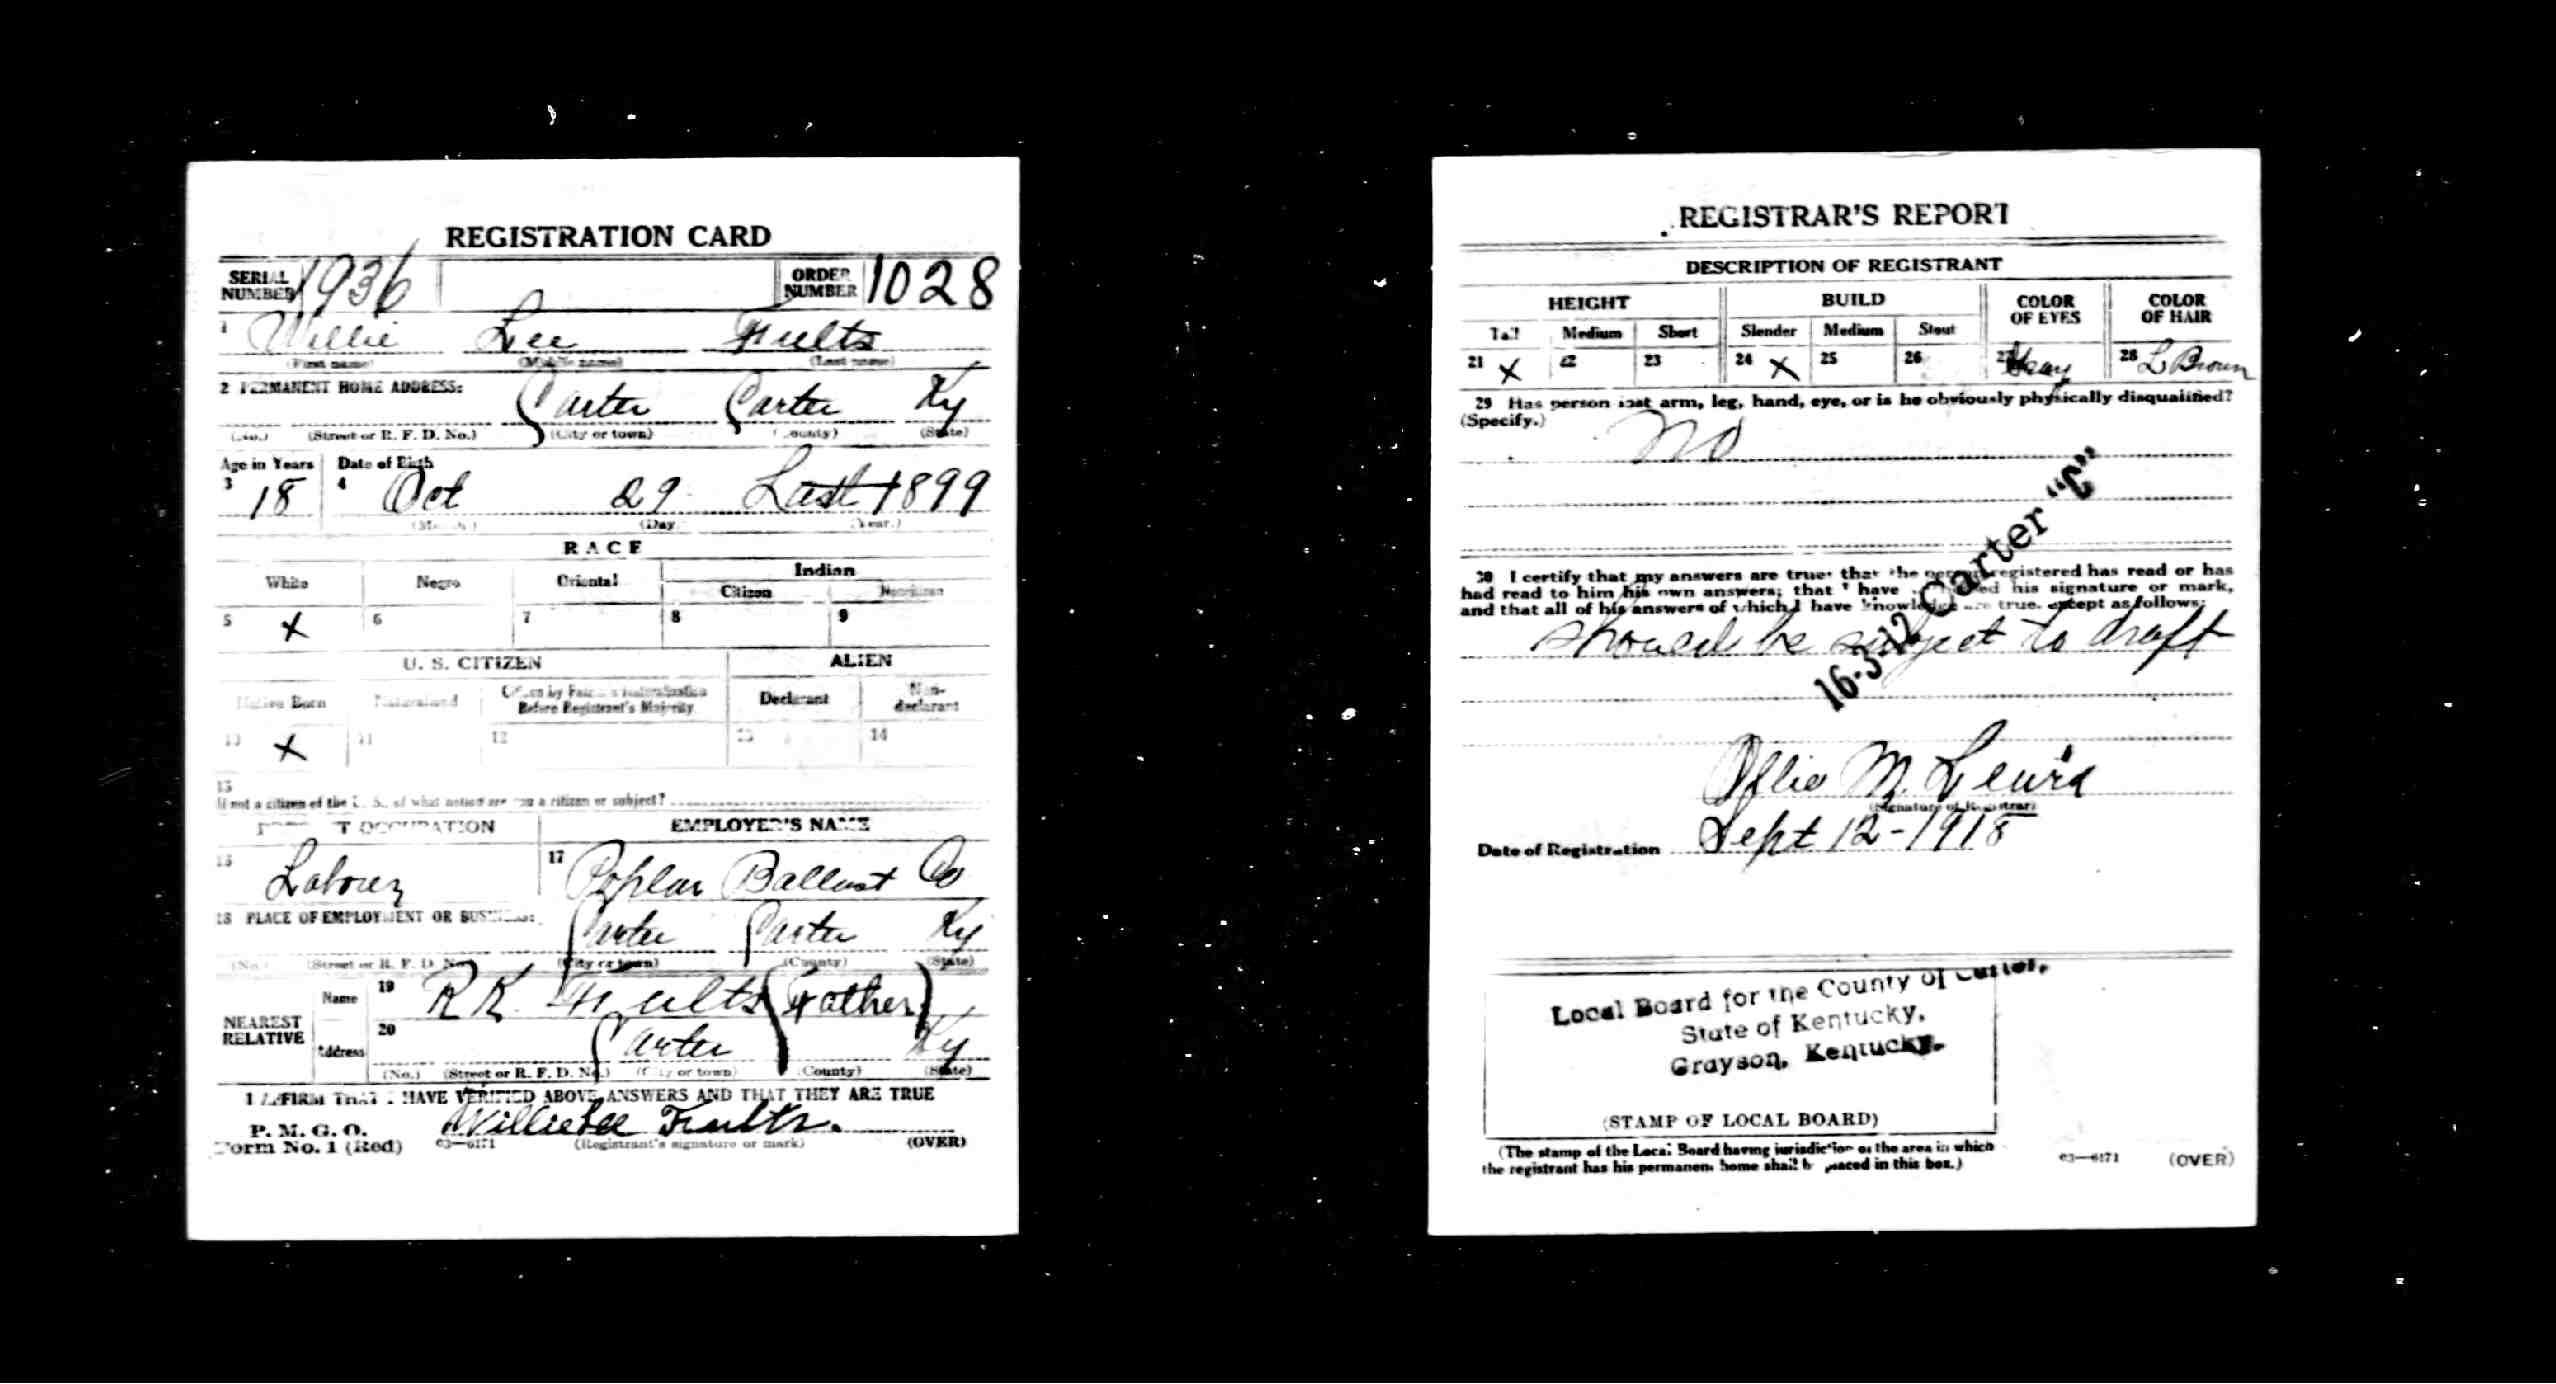 REGISTRATION CARD
SERIAL NUMBER 1936 ORDER NUMBER 1028
1 Willie Lee Fults
(First name) (Middle name) (Last name)
2 PERMANENT HOME ADDRESS:
Carter Carter Ky
(No.) (Street or R. F. D. No.) (City or town) (County) (State)
Age in Years Date of Birth
3 18 4 Oct 29 Last 1899
(Month.) (Day.) (Year.)
RACE
White Negro Oriental Indian
Citizen Noncitizen
5 X 6 7 8 9
U. S. CITIZEN ALIEN
Native Born Naturalized Citizen by Father's Naturalization Before Registrant's Majority Declarant Non-declarant
10 X 11 12 13 14
15
If not a citizen of the U. S., of what nation are you a citizen or subject?
PRESENT OCCUPATION EMPLOYER'S NAME
16 Laborer 17 Poplar Ballast Co
18 PLACE OF EMPLOYMENT OR BUSINESS:
Carter Carter Ky
(No.) (Street or R. F. D. No.) (City or town) (County) (State)
NEAREST RELATIVE Name 19 R K Fults (Father)
Address 20 Carter Ky
(No.) (Street or R. F. D. No.) (City or town) (County) (State)
I AFFIRM THAT I HAVE VERIFIED ABOVE ANSWERS AND THAT THEY ARE TRUE
P. M. G. O.
Form No. 1 (Red) 03—6171 Willie Lee Fults. (Registrant's signature or mark) (OVER)
REGISTRAR'S REPORT
DESCRIPTION OF REGISTRANT
HEIGHT BUILD COLOR OF EYES COLOR OF HAIR
Tall Medium Short Slender Medium Stout
21 X 22 23 24 X 25 26 27 Gray 28 L Brown
29 Has person lost arm, leg, hand, eye, or is he obviously physically disqualified?
(Specify.) No
30 I certify that my answers are true; that the person registered has read or has
had read to him his own answers; that I have witnessed his signature or mark,
and that all of his answers of which I have knowledge are true, except as follows:
should be subject to draft
16-3-12 Carter "C"
Ollie M. Lewis
(Signature of Registrar)
Date of Registration Sept 12-1918
Local Board for the County of Carter,
State of Kentucky,
Grayson, Kentucky.
(STAMP OF LOCAL BOARD)
(The stamp of the Local Board having jurisdiction of the area in which
the registrant has his permanent home shall be placed in this box.)
03—6171 (OVER)